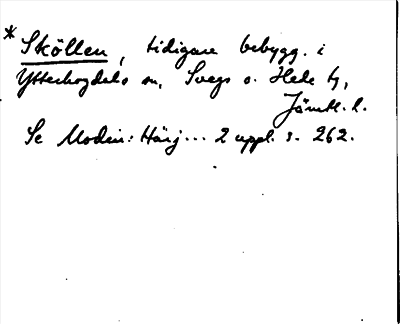 *Sköllen, tidigare bebygg. i
Ytterhogdals sn, Svegs o. Hede tg,
Jämtl. l.
Se Modin: Härj... 2 uppl. s. 262.